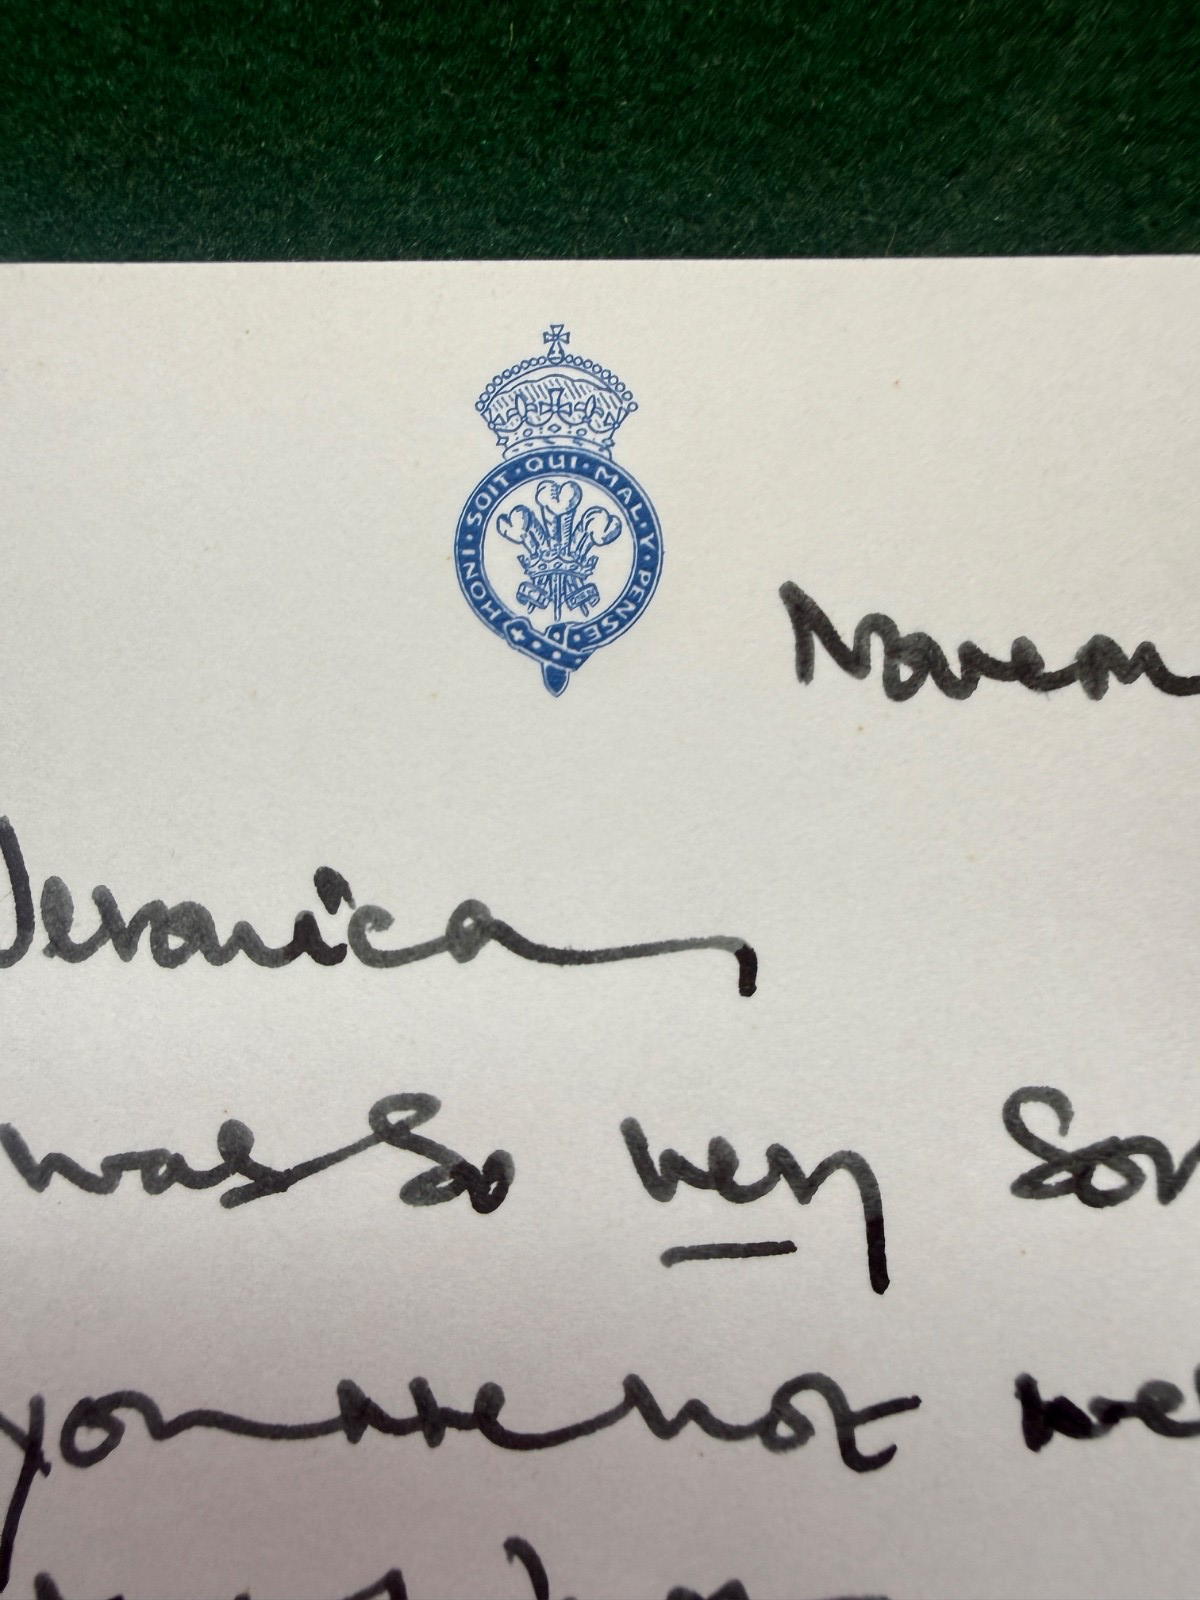 HONI · SOIT · QUI · MAL · Y · PENSE
Novem
Veronica,
was so very Sor
you are not we